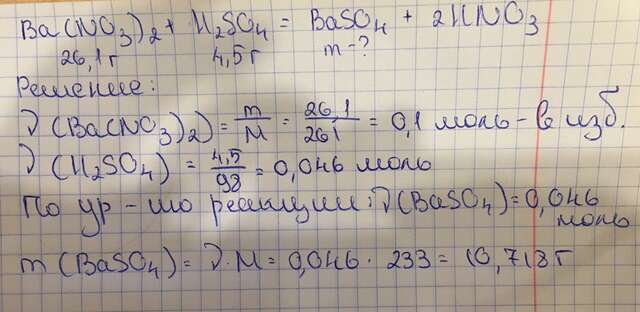 Ba(NO₃)₂ + H₂SO₄ = BaSO₄ + 2HNO₃
26,1г 4,5г m-?
Решение:
ν(Ba(NO₃)₂) = m/M = 26,1/261 = 0,1 моль - в изб.
ν(H₂SO₄) = 4,5/98 = 0,046 моль
По ур-ию реакции: ν(BaSO₄) = 0,046 моль
m(BaSO₄) = ν·M = 0,046 · 233 = 10,718г